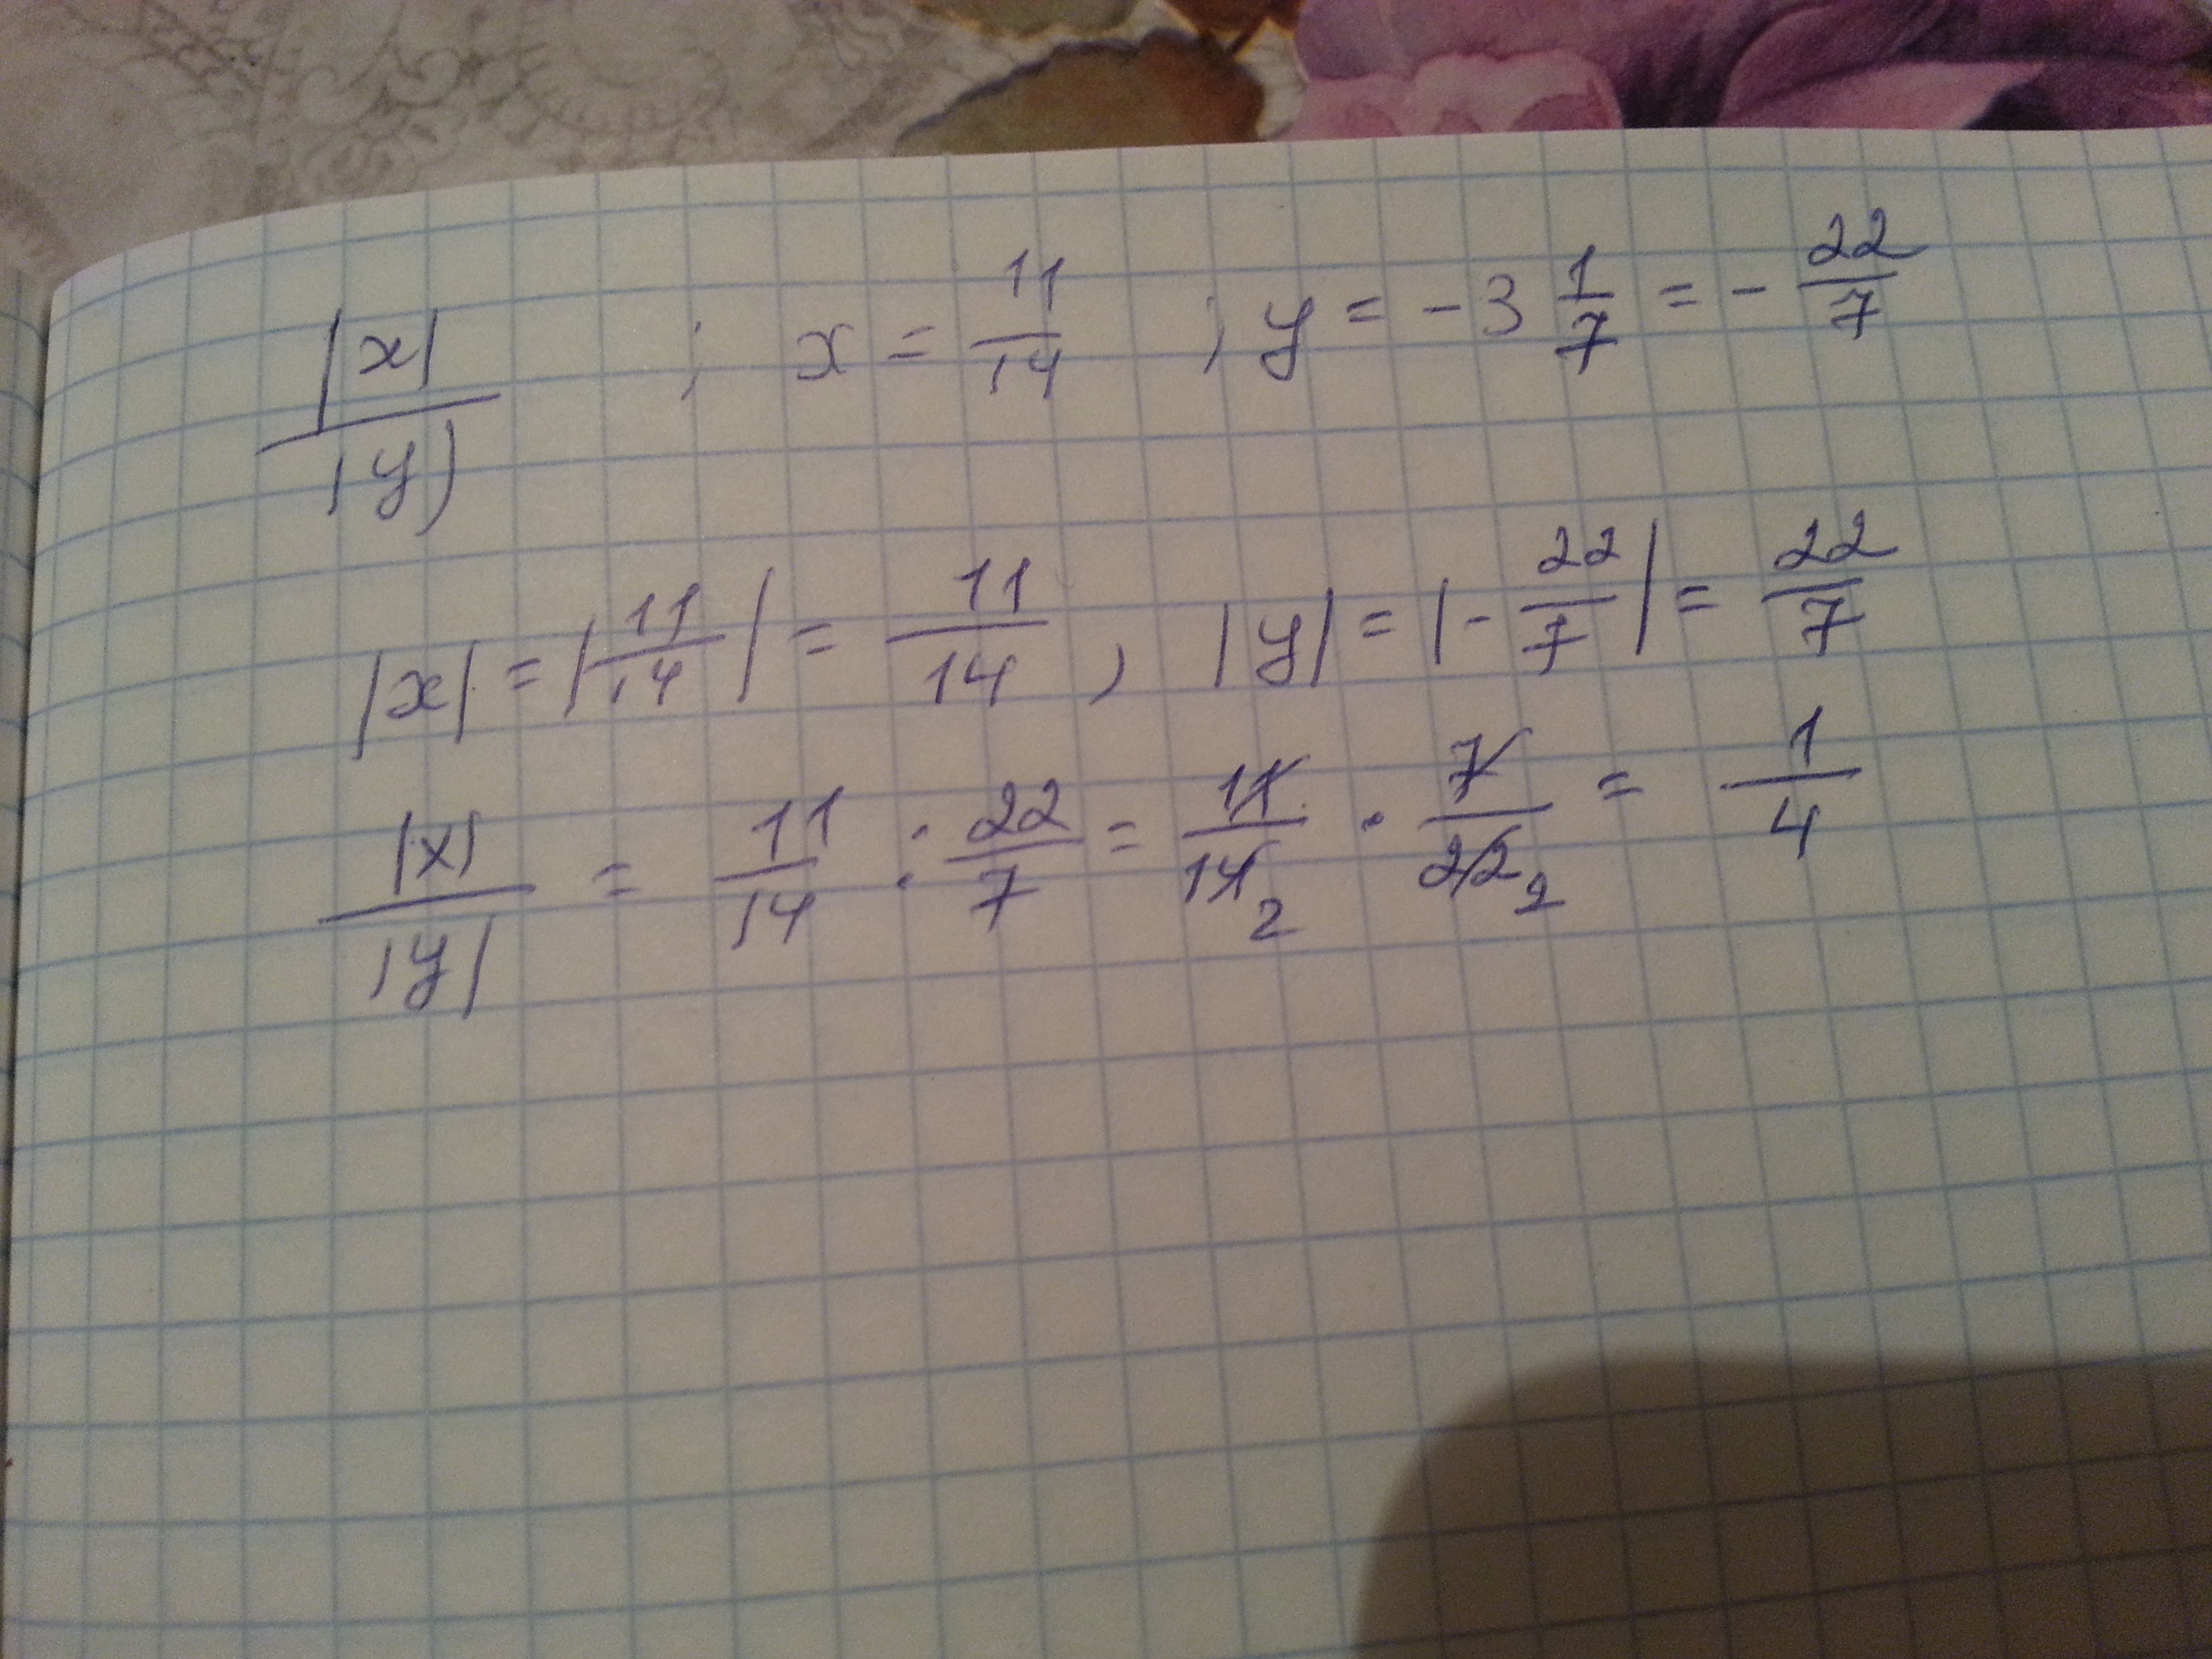 |x|/|y| ; x = 11/14 ; y = -3 1/7 = - 22/7
|x| = |11/14| = 11/14 , |y| = |- 22/7| = 22/7
|x|/|y| = 11/14 : 22/7 = 11/14 2 · 7/22 2 = 1/4